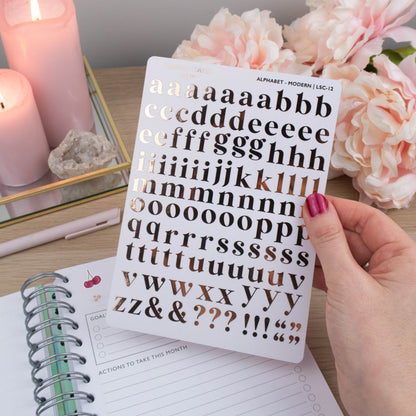 ALPHABET - MODERN | LSC-12
aaaaaaaabbb
cccdddeeeee
eefffggghhh
iiiiiijjjkllll
mmmnnnnnnn
oooooooppp
qqrrrrssssss
tttttuuuuuu
vvwwxxyyy
zz&&???!!!““
GOALS
ACTIONS TO TAKE THIS MONTH